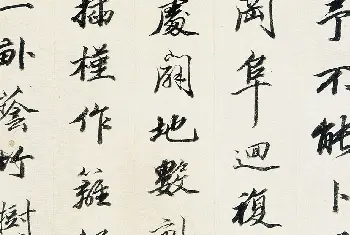 予不能卜
岡阜迴複
處闢地數
插槿作籬
一畝蔭竹樹